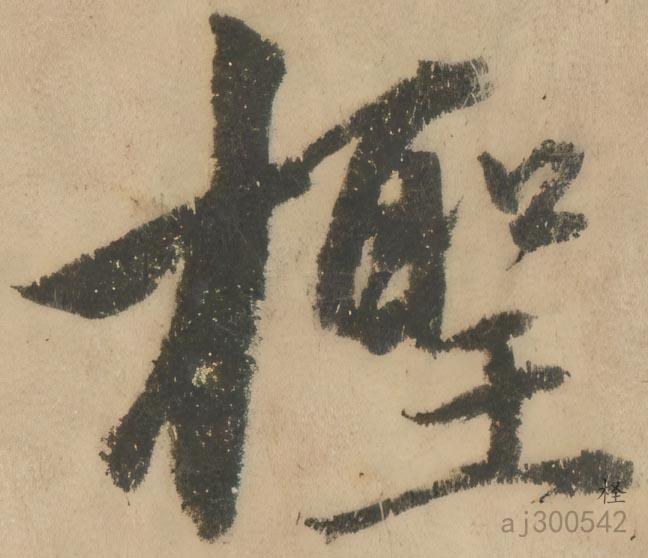 檉
柽
aj300542